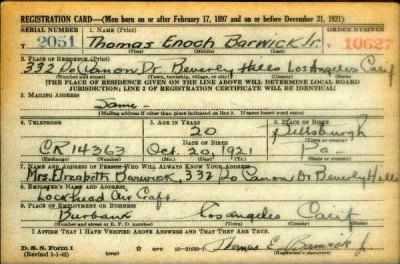 REGISTRATION CARD—(Men born on or after February 17, 1897 and on or before December 31, 1921)
SERIAL NUMBER 1. NAME (Print) ORDER NUMBER
2051 Thomas Enoch Barwick Jr. 10627
(First) (Middle) (Last)
2. PLACE OF RESIDENCE (Print)
332 So Canon Dr Beverly Hills Los Angeles Calif
(Number and street) (Town, township, village, or city) (County) (State)
[THE PLACE OF RESIDENCE GIVEN ON THE LINE ABOVE WILL DETERMINE LOCAL BOARD
JURISDICTION; LINE 2 OF REGISTRATION CERTIFICATE WILL BE IDENTICAL]
3. MAILING ADDRESS
Same
[Mailing address if other than place indicated on line 2. If same insert word same]
4. TELEPHONE 5. AGE IN YEARS 6. PLACE OF BIRTH
20 Pittsburgh
DATE OF BIRTH
CR 14363 Oct. 20, 1921 Pa
7. NAME AND ADDRESS OF PERSON WHO WILL ALWAYS KNOW YOUR ADDRESS
Mrs. Elizabeth Barwick, 332 So Canon Dr Beverly Hills
8. EMPLOYER'S NAME AND ADDRESS
Lockheed Air Craft
9. PLACE OF EMPLOYMENT OR BUSINESS
Burbank Los Angeles Calif
(Number and street or R. F. D. number) (Town) (County) (State)
I AFFIRM THAT I HAVE VERIFIED ABOVE ANSWERS AND THAT THEY ARE TRUE.
D. S. S. Form 1
(Revised 1-1-42) Thomas E. Barwick Jr.